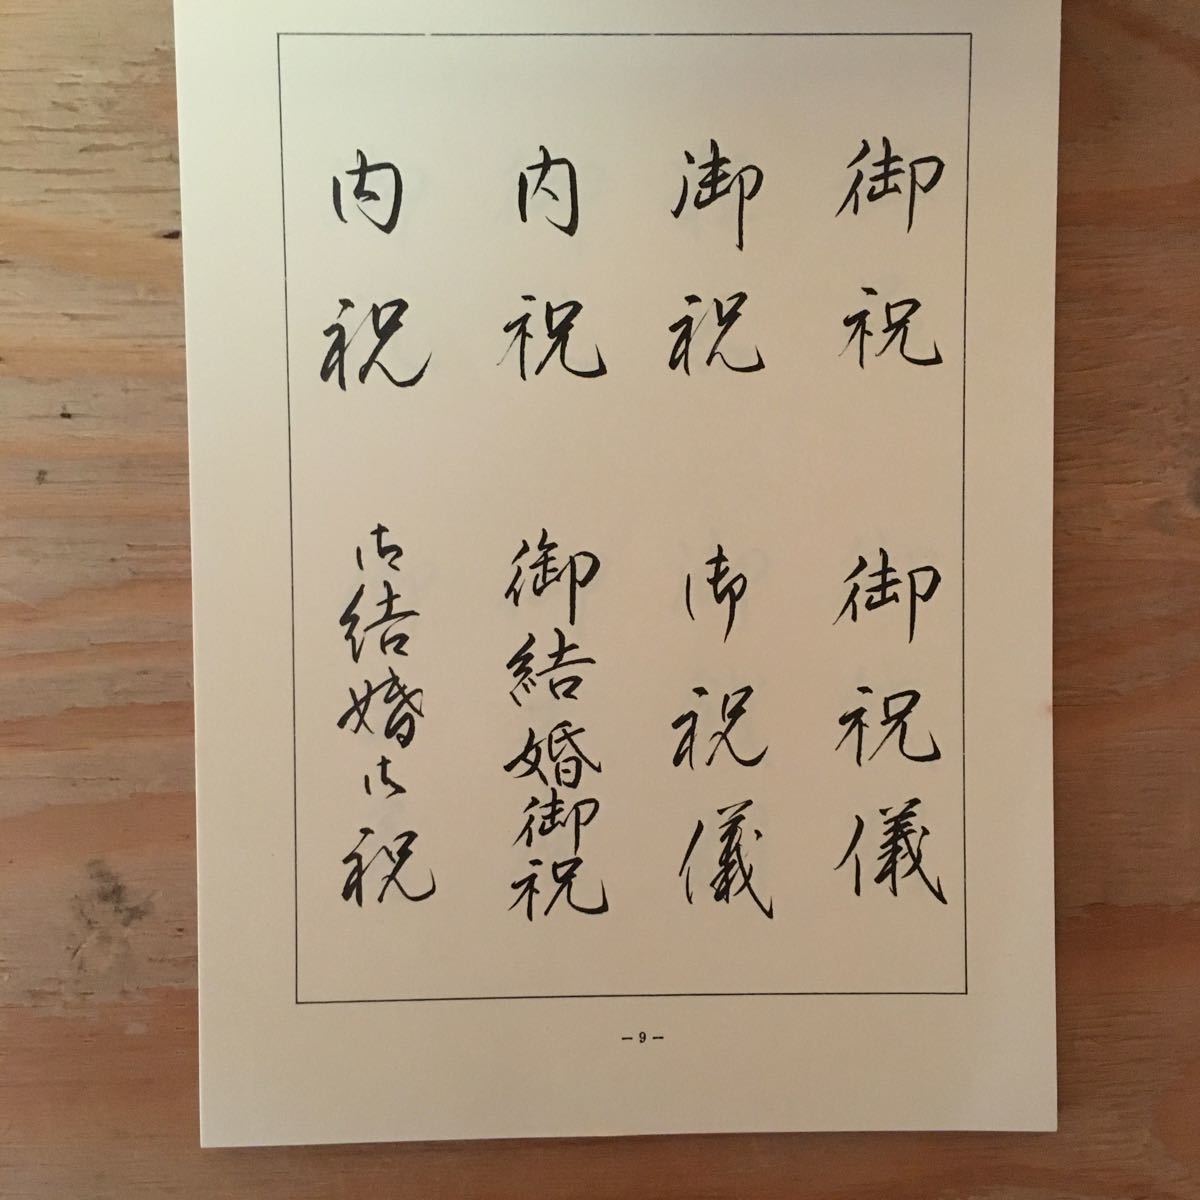 御祝
御祝
内祝
内祝
御祝儀
御祝儀
御結婚御祝
御結婚御祝
－9－